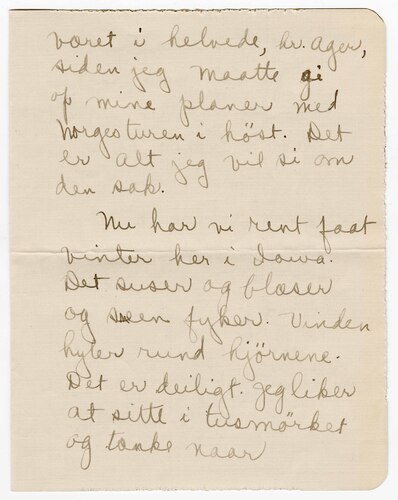 været i helvede, hr. Ager,
siden jeg maatte gi
op mine planer med
Norgesturen i höst. Det
er alt jeg vil si om
den sak.
Nu har vi rent faat
vinter her i Iowa.
Det suser og blæser
og sneen fyker. Vinden
hyler rund hjørnene.
Det er deiligt. Jeg liker
at sitte i tusmørket
og tænke naar